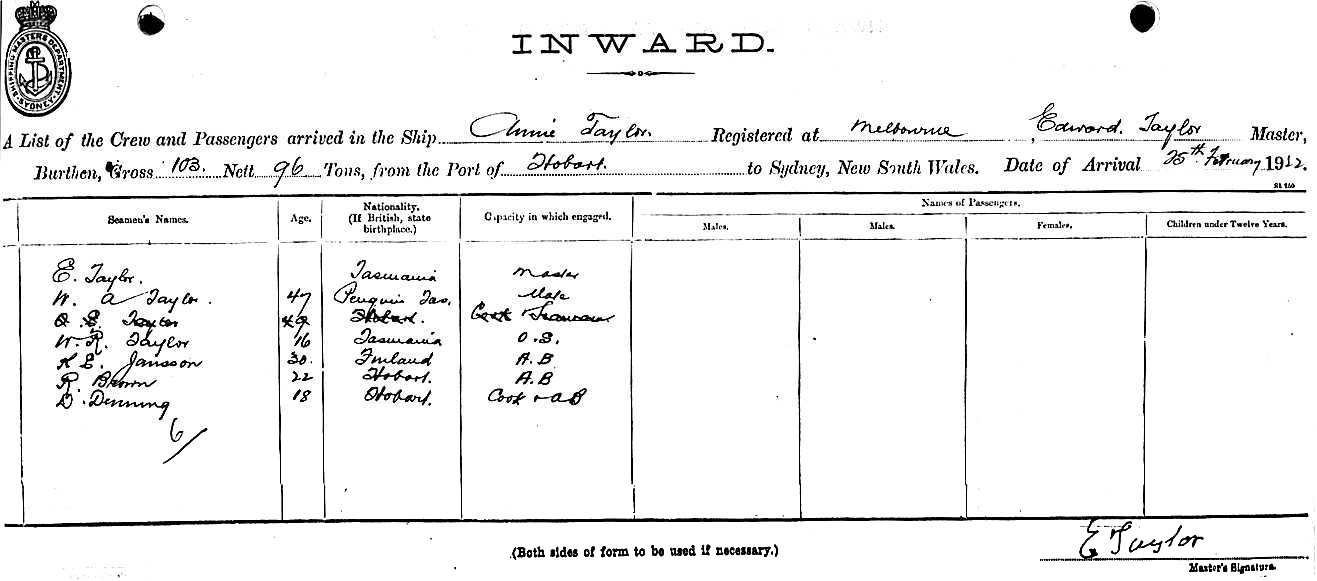 SHIPPING MASTERS DEPARTMENT SYDNEY
INWARD.
A List of the Crew and Passengers arrived in the Ship Annie Taylor. Registered at Melbourne, Edward Taylor Master,
Burthen, Gross 103. Nett 96 Tons, from the Port of Hobart. to Sydney, New South Wales. Date of Arrival 25th February 1912.
Seamen's Names. Age. Nationality. (If British, state birthplace.) Capacity in which engaged. Names of Passengers.
Males. Males. Females. Children under Twelve Years.
E. Taylor. Tasmania Master
W. A Taylor. 47 Penguin Tas. Mate
Taylor 49 Hobart. Cook
W. R. Taylor 16 Tasmania O.S.
K E. Jansson 30. Finland A.B
R. Brown 22 Hobart. A.B
D. Denning 18 Hobart. Cook + AB
6/
(Both sides of form to be used if necessary.)
E Taylor
Master's Signature.